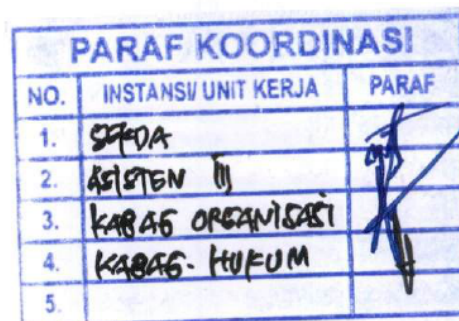 PARAF KOORDINASI
NO. INSTANSI/ UNIT KERJA PARAF
1. SEKDA
2. ASISTEN III
3. KABAG ORGANISASI
4. KABAG. HUKUM
5.